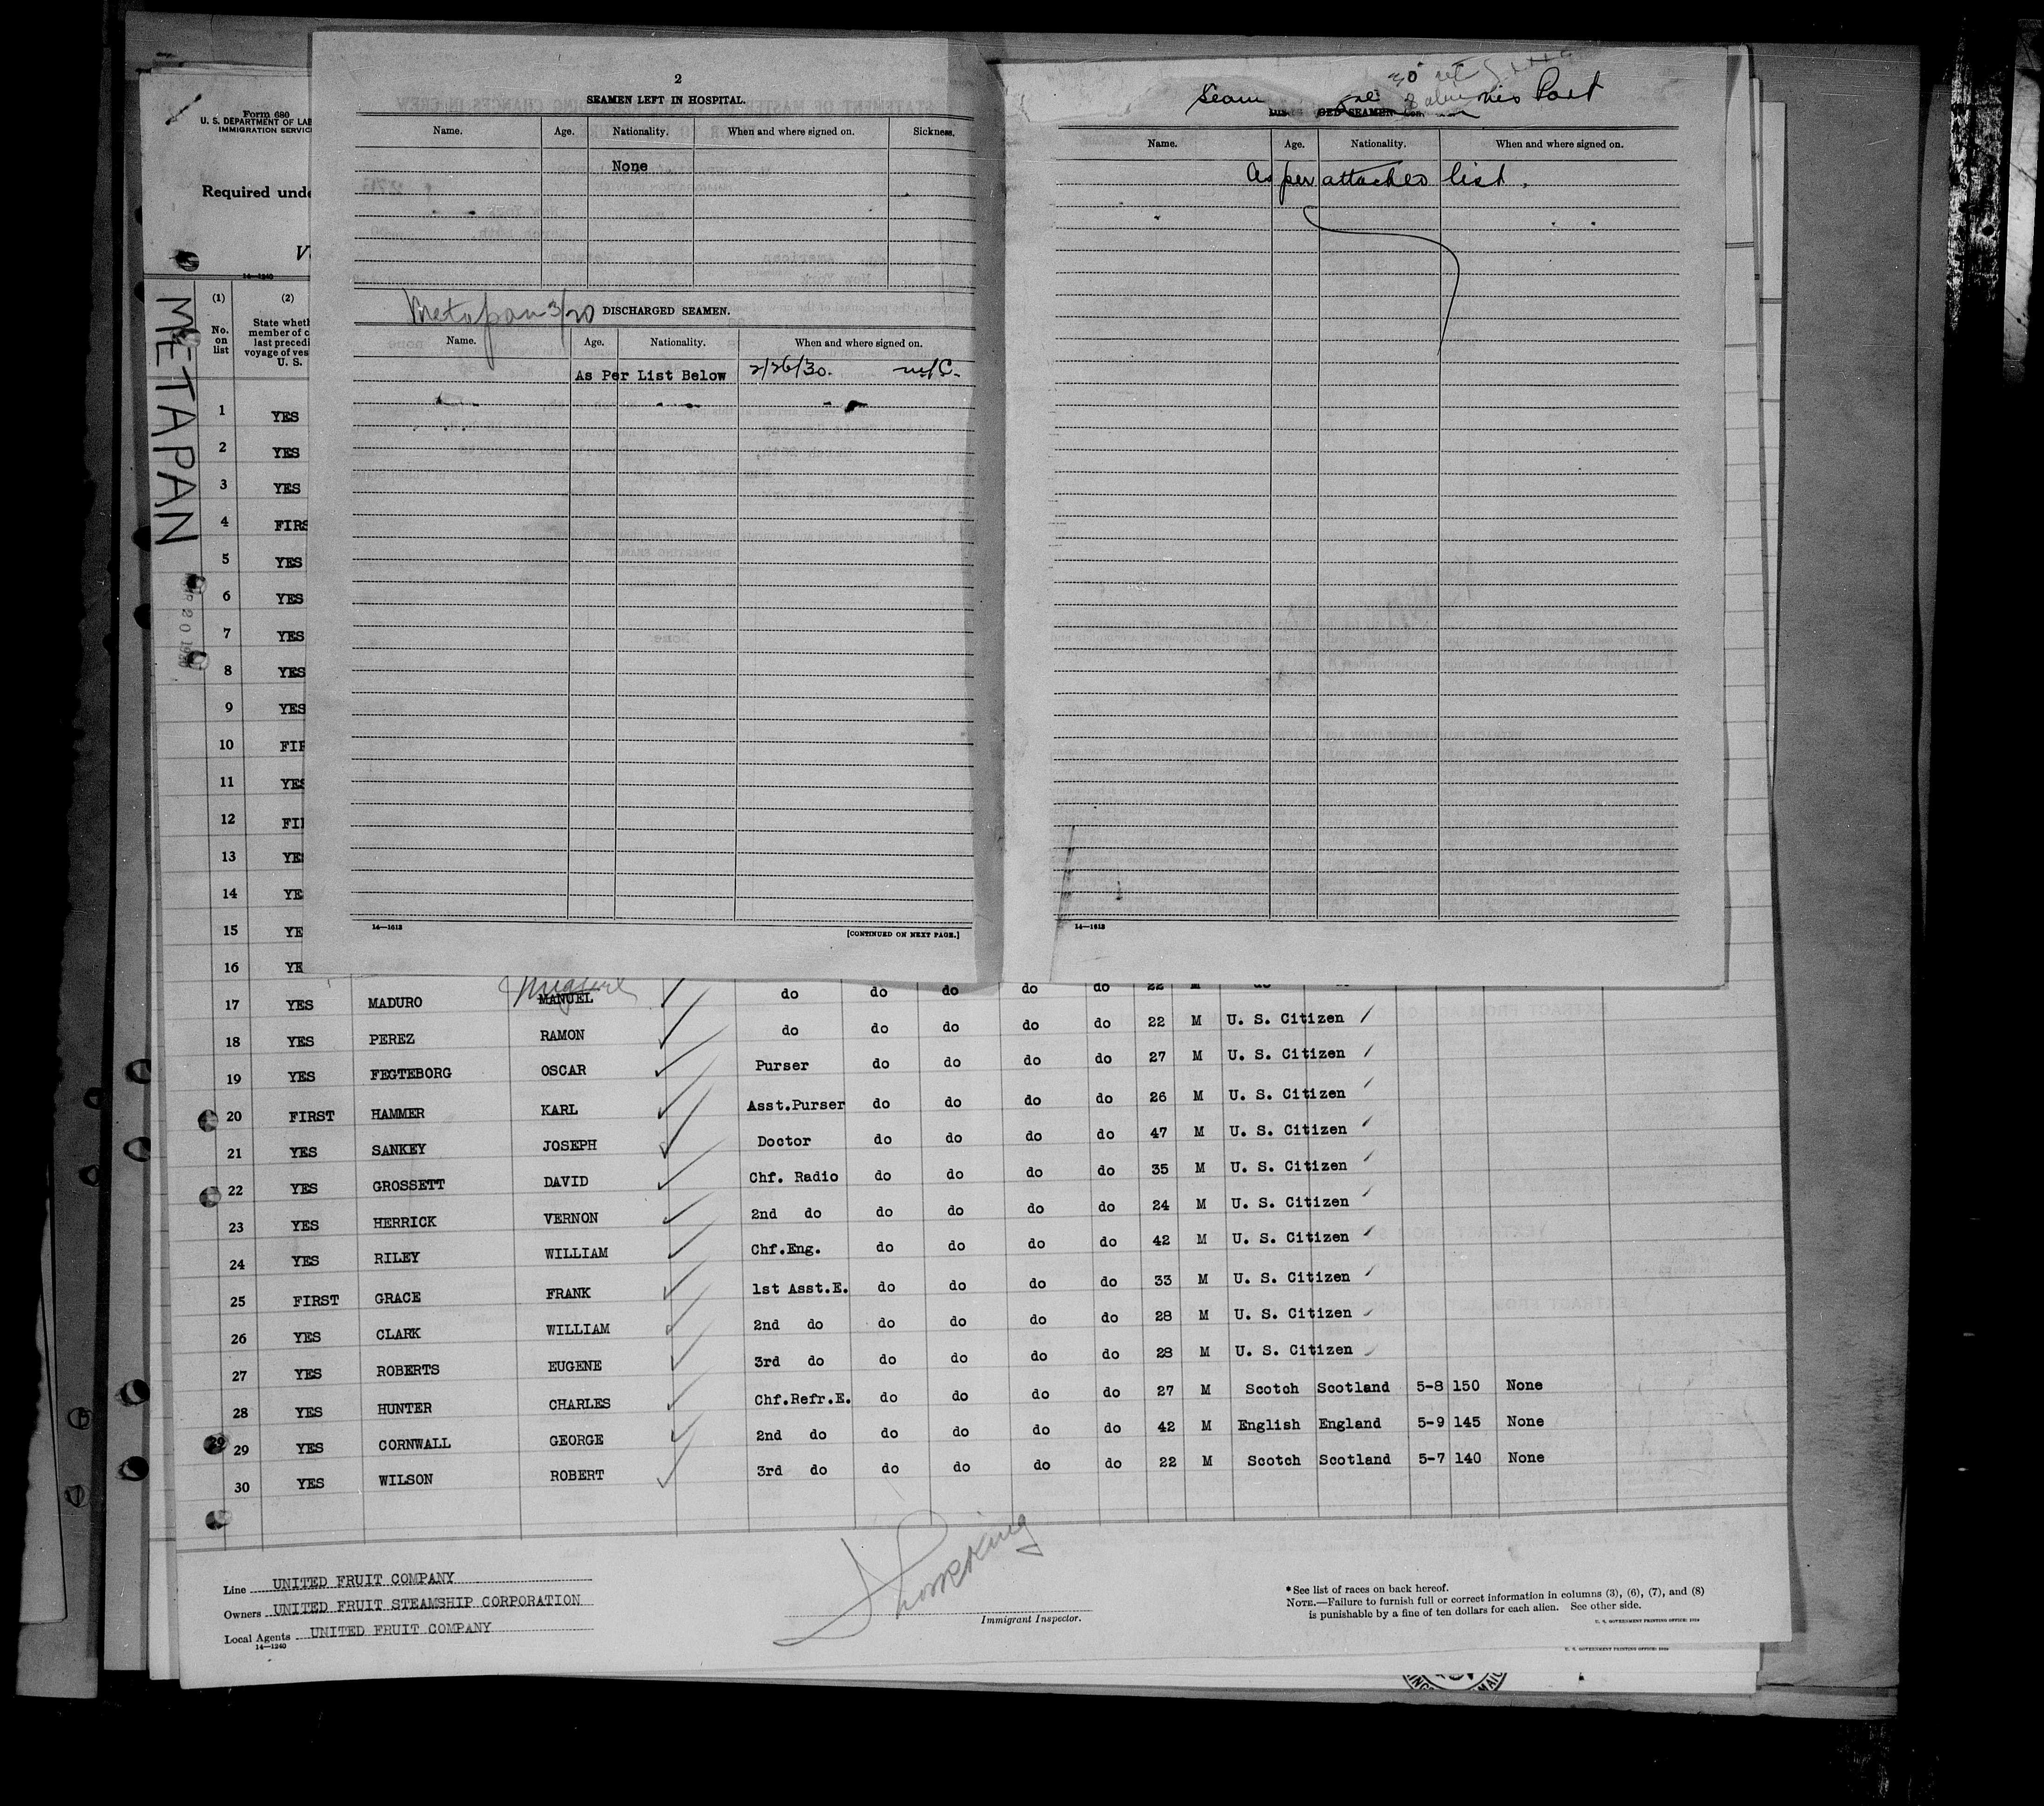 Form 680
U. S. DEPARTMENT OF LAB
IMMIGRATION SERVIC
Required unde
14—1240
METAPAN
(1) (2)
No. on list
State wheth
member of c
last precedi
voyage of ves
U. S.
1 YES
2 YES
3 YES
4 FIRS
5 YES
6 YES
7 YES
8 YES
9 YES
10 FIR
11 YES
12 FI
13 YE
14 YE
15 YE
16 YE
2
SEAMEN LEFT IN HOSPITAL.
Name. Age. Nationality. When and where signed on. Sickness.
None
Metapan 3/20 DISCHARGED SEAMEN.
Name. Age. Nationality. When and where signed on.
As Per List Below 2/26/30. N/C.
14—1613 [CONTINUED ON NEXT PAGE.]
Seam
this Port
GED SEAMEN
Name. Age. Nationality. When and where signed on.
As per attached list.
14—1613
17 YES MADURO MANUEL do do do do do 22 M do
18 YES PEREZ RAMON do do do do do 22 M U. S. Citizen
19 YES FEGTEBORG OSCAR Purser do do do do 27 M U. S. Citizen
20 FIRST HAMMER KARL Asst.Purser do do do do 26 M U. S. Citizen
21 YES SANKEY JOSEPH Doctor do do do do 47 M U. S. Citizen
22 YES GROSSETT DAVID Chf. Radio do do do do 35 M U. S. Citizen
23 YES HERRICK VERNON 2nd do do do do do 24 M U. S. Citizen
24 YES RILEY WILLIAM Chf.Eng. do do do do 42 M U. S. Citizen
25 FIRST GRACE FRANK 1st Asst.E. do do do do 33 M U. S. Citizen
26 YES CLARK WILLIAM 2nd do do do do do 28 M U. S. Citizen
27 YES ROBERTS EUGENE 3rd do do do do do 28 M U. S. Citizen
28 YES HUNTER CHARLES Chf.Refr.E. do do do do 27 M Scotch Scotland 5-8 150 None
29 29 YES CORNWALL GEORGE 2nd do do do do do 42 M English England 5-9 145 None
30 YES WILSON ROBERT 3rd do do do do do 22 M Scotch Scotland 5-7 140 None
Line UNITED FRUIT COMPANY
Owners UNITED FRUIT STEAMSHIP CORPORATION
Local Agents UNITED FRUIT COMPANY
14—1240
Immigrant Inspector.
* See list of races on back hereof.
NOTE.—Failure to furnish full or correct information in columns (3), (6), (7), and (8)
is punishable by a fine of ten dollars for each alien. See other side.
U. S. GOVERNMENT PRINTING OFFICE: 1929
U. S. GOVERNMENT PRINTING OFFICE: 1929